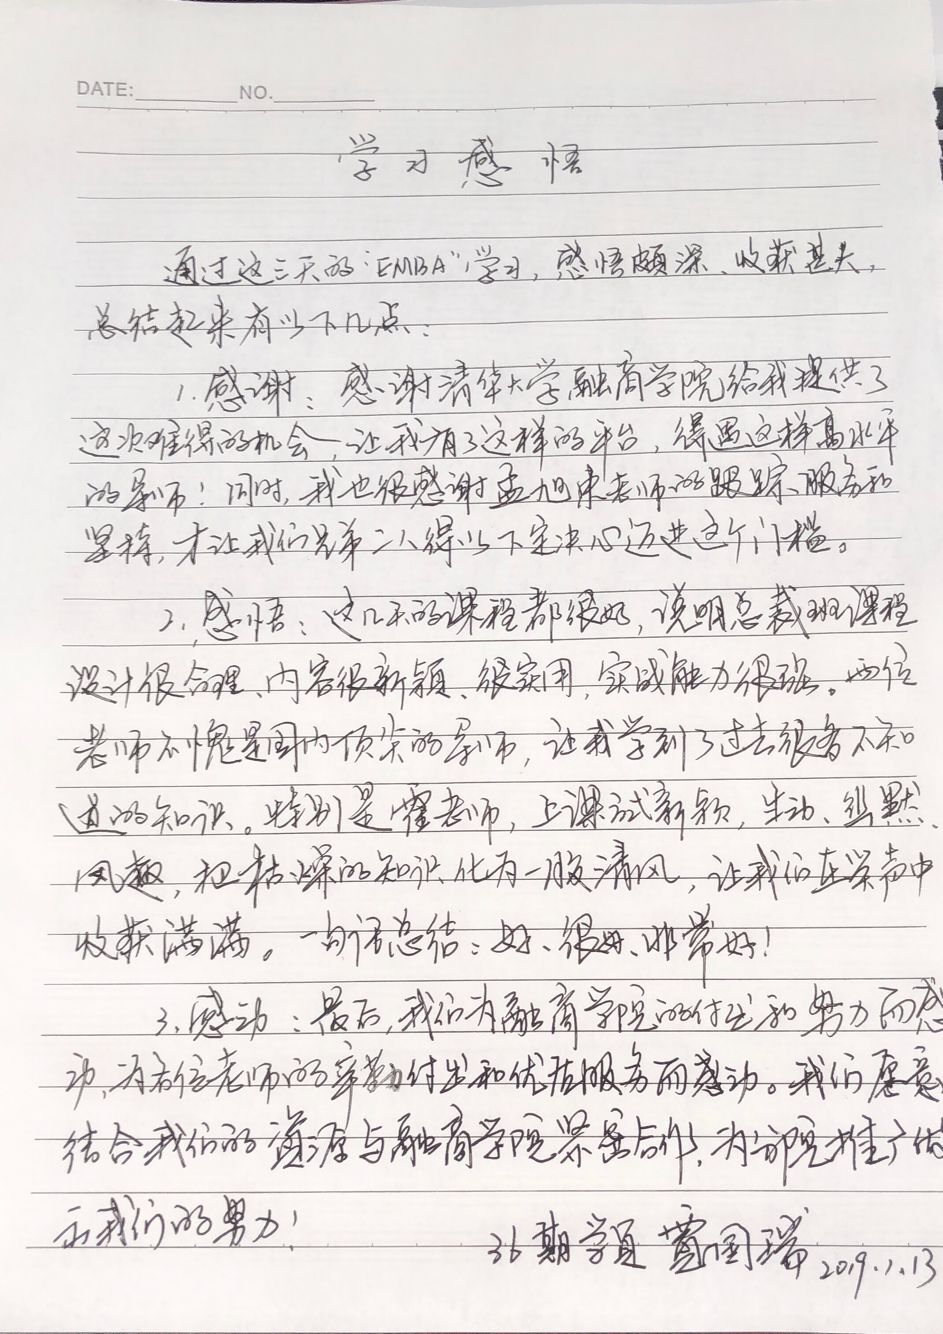 DATE:
NO.
学习感悟
通过这三天的"EMBA"学习,感悟颇深、收获甚大,
总结起来有以下几点:
1.感谢:感谢清华大学融商学院给我提供了
这次难得的机会,让我有了这样的平台,得遇这样高水平
的导师!同时,我也很感谢孟旭东老师的跟踪、服务和
坚持,才让我们兄弟二人得以下定决心迈进这个门槛。
2.感悟:这几天的课程都很好,说明总裁班课程
设计很合理、内容很新颖、很实用,实战能力很强。两位
老师不愧是国内顶尖的导师,让我学到了过去很多不知
道的知识。特别是霍老师,上课试新颖,生动、幽默、
风趣,把枯燥的知识化为一股清风,让我们在笑声中
收获满满。一句话总结:好、很好、非常好!
3.感动:最后,我们为融商学院的付出和努力而感
动,为各位老师的辛勤付出和优质服务而感动。我们愿意
结合我们的资源与融商学院紧密合作,为学院推广做
出我们的努力!
36期学员 贾国瑞 2019.1.13